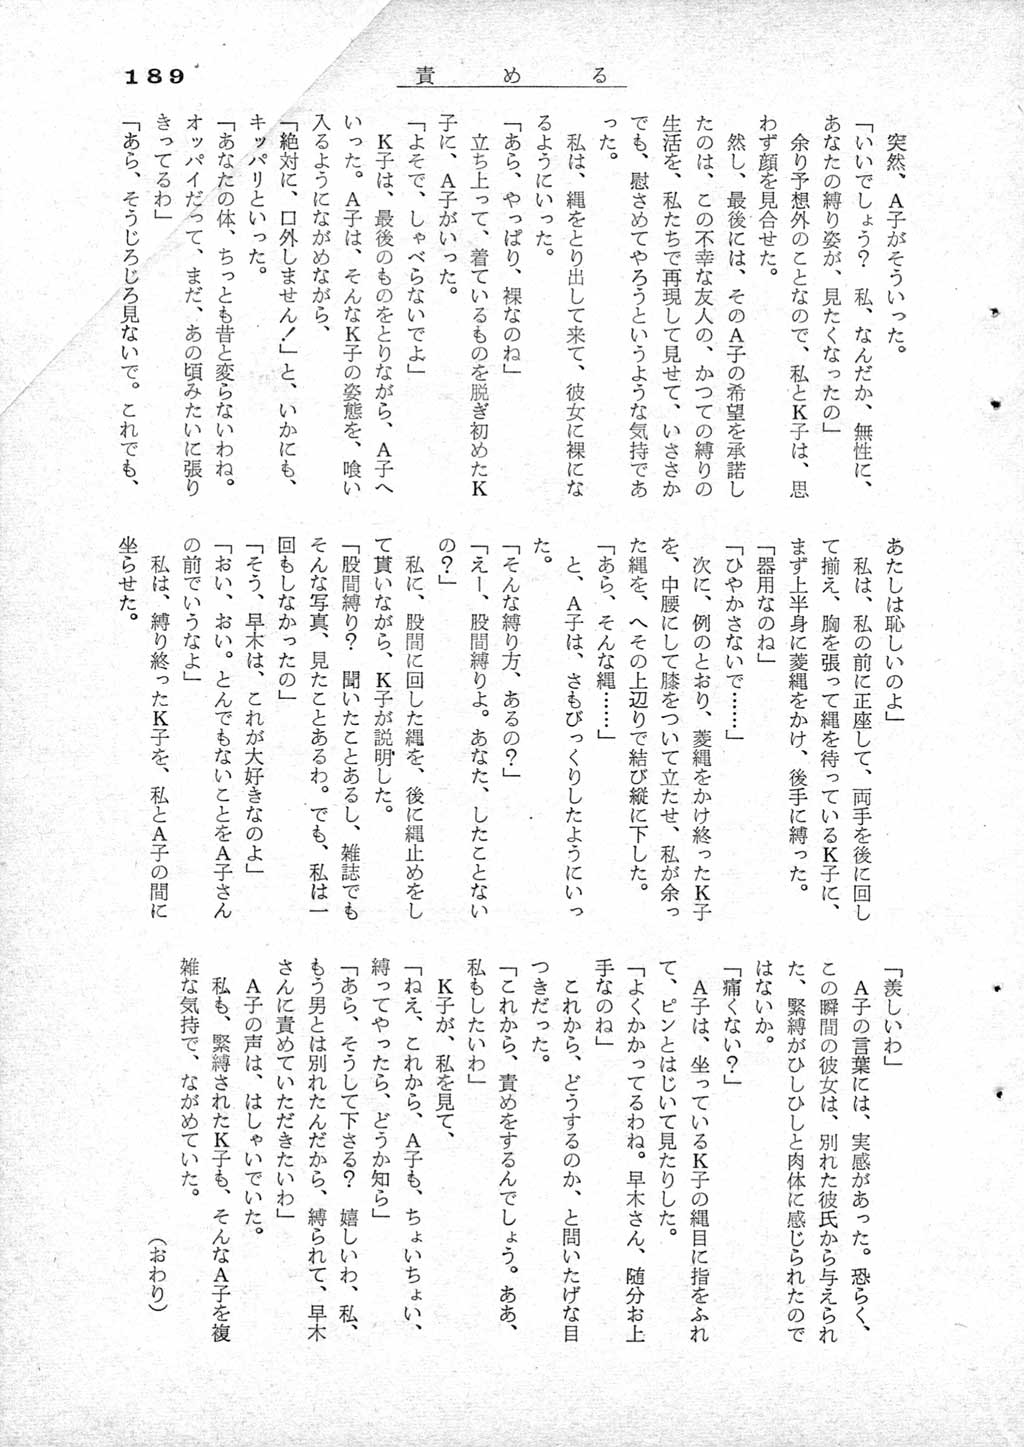 189
責める
突然、A子がそういった。
「いいでしょう？　私、なんだか、無性に、
あなたの縛り姿が、見たくなったの」
余り予想外のことなので、私とK子は、思
わず顔を見合せた。
然し、最後には、そのA子の希望を承諾し
たのは、この不幸な友人の、かつての縛りの
生活を、私たちで再現して見せて、いささか
でも、慰さめてやろうというような気持であ
った。
私は、縄をとり出して来て、彼女に裸にな
るようにいった。
「あら、やっぱり、裸なのね」
立ち上って、着ているものを脱ぎ初めたK
子に、A子がいった。
「よそで、しゃべらないでよ」
K子は、最後のものをとりながら、A子へ
いった。A子は、そんなK子の姿態を、喰い
入るようにながめながら、
「絶対に、口外しません！」と、いかにも、
キッパリといった。
「あなたの体、ちっとも昔と変らないわね。
オッパイだって、まだ、あの頃みたいに張り
きってるわ」
「あら、そうじろじろ見ないで。これでも、
あたしは恥しいのよ」
私は、私の前に正座して、両手を後に回し
て揃え、胸を張って縄を待っているK子に、
まず上半身に菱縄をかけ、後手に縛った。
「器用なのね」
「ひやかさないで……」
次に、例のとおり、菱縄をかけ終ったK子
を、中腰にして膝をついて立たせ、私が余っ
た縄を、へその上辺りで結び縦に下した。
「あら、そんな縄……」
と、A子は、さもびっくりしたようにいっ
た。
「そんな縛り方、あるの？」
「えー、股間縛りよ。あなた、したことない
の？」
私に、股間に回した縄を、後に縄止めをし
て貰いながら、K子が説明した。
「股間縛り？　聞いたことあるし、雑誌でも
そんな写真、見たことあるわ。でも、私は一
回もしなかったの」
「そう、早木は、これが大好きなのよ」
「おい、おい。とんでもないことをA子さん
の前でいうなよ」
私は、縛り終ったK子を、私とA子の間に
坐らせた。
「羨しいわ」
A子の言葉には、実感があった。恐らく、
この瞬間の彼女は、別れた彼氏から与えられ
た、緊縛がひしひしと肉体に感じられたので
はないか。
「痛くない？」
A子は、坐っているK子の縄目に指をふれ
て、ピンとはじいて見たりした。
「よくかかってるわね。早木さん、随分お上
手なのね」
これから、どうするのか、と問いたげな目
つきだった。
「これから、責めをするんでしょう。ああ、
私もしたいわ」
K子が、私を見て、
「ねえ、これから、A子も、ちょいちょい、
縛ってやったら、どうか知ら」
「あら、そうして下さる？　嬉しいわ、私、
もう男とは別れたんだから、縛られて、早木
さんに責めていただきたいわ」
A子の声は、はしゃいでいた。
私も、緊縛されたK子も、そんなA子を複
雑な気持で、ながめていた。
（おわり）